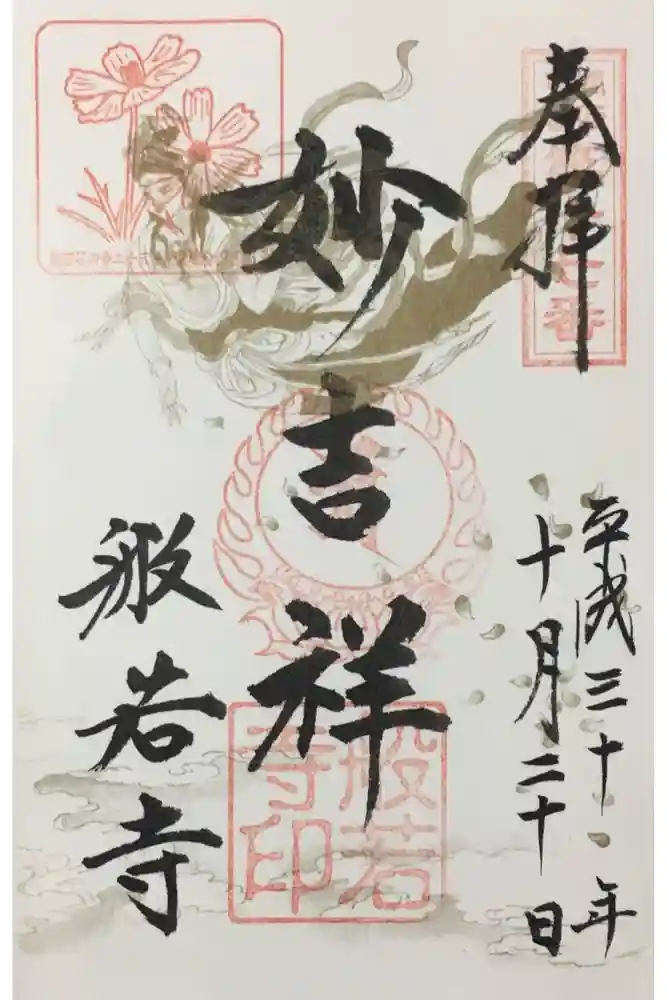 奉拝
平成三十年
十月二十日
妙吉祥
般若寺
般若
寺印